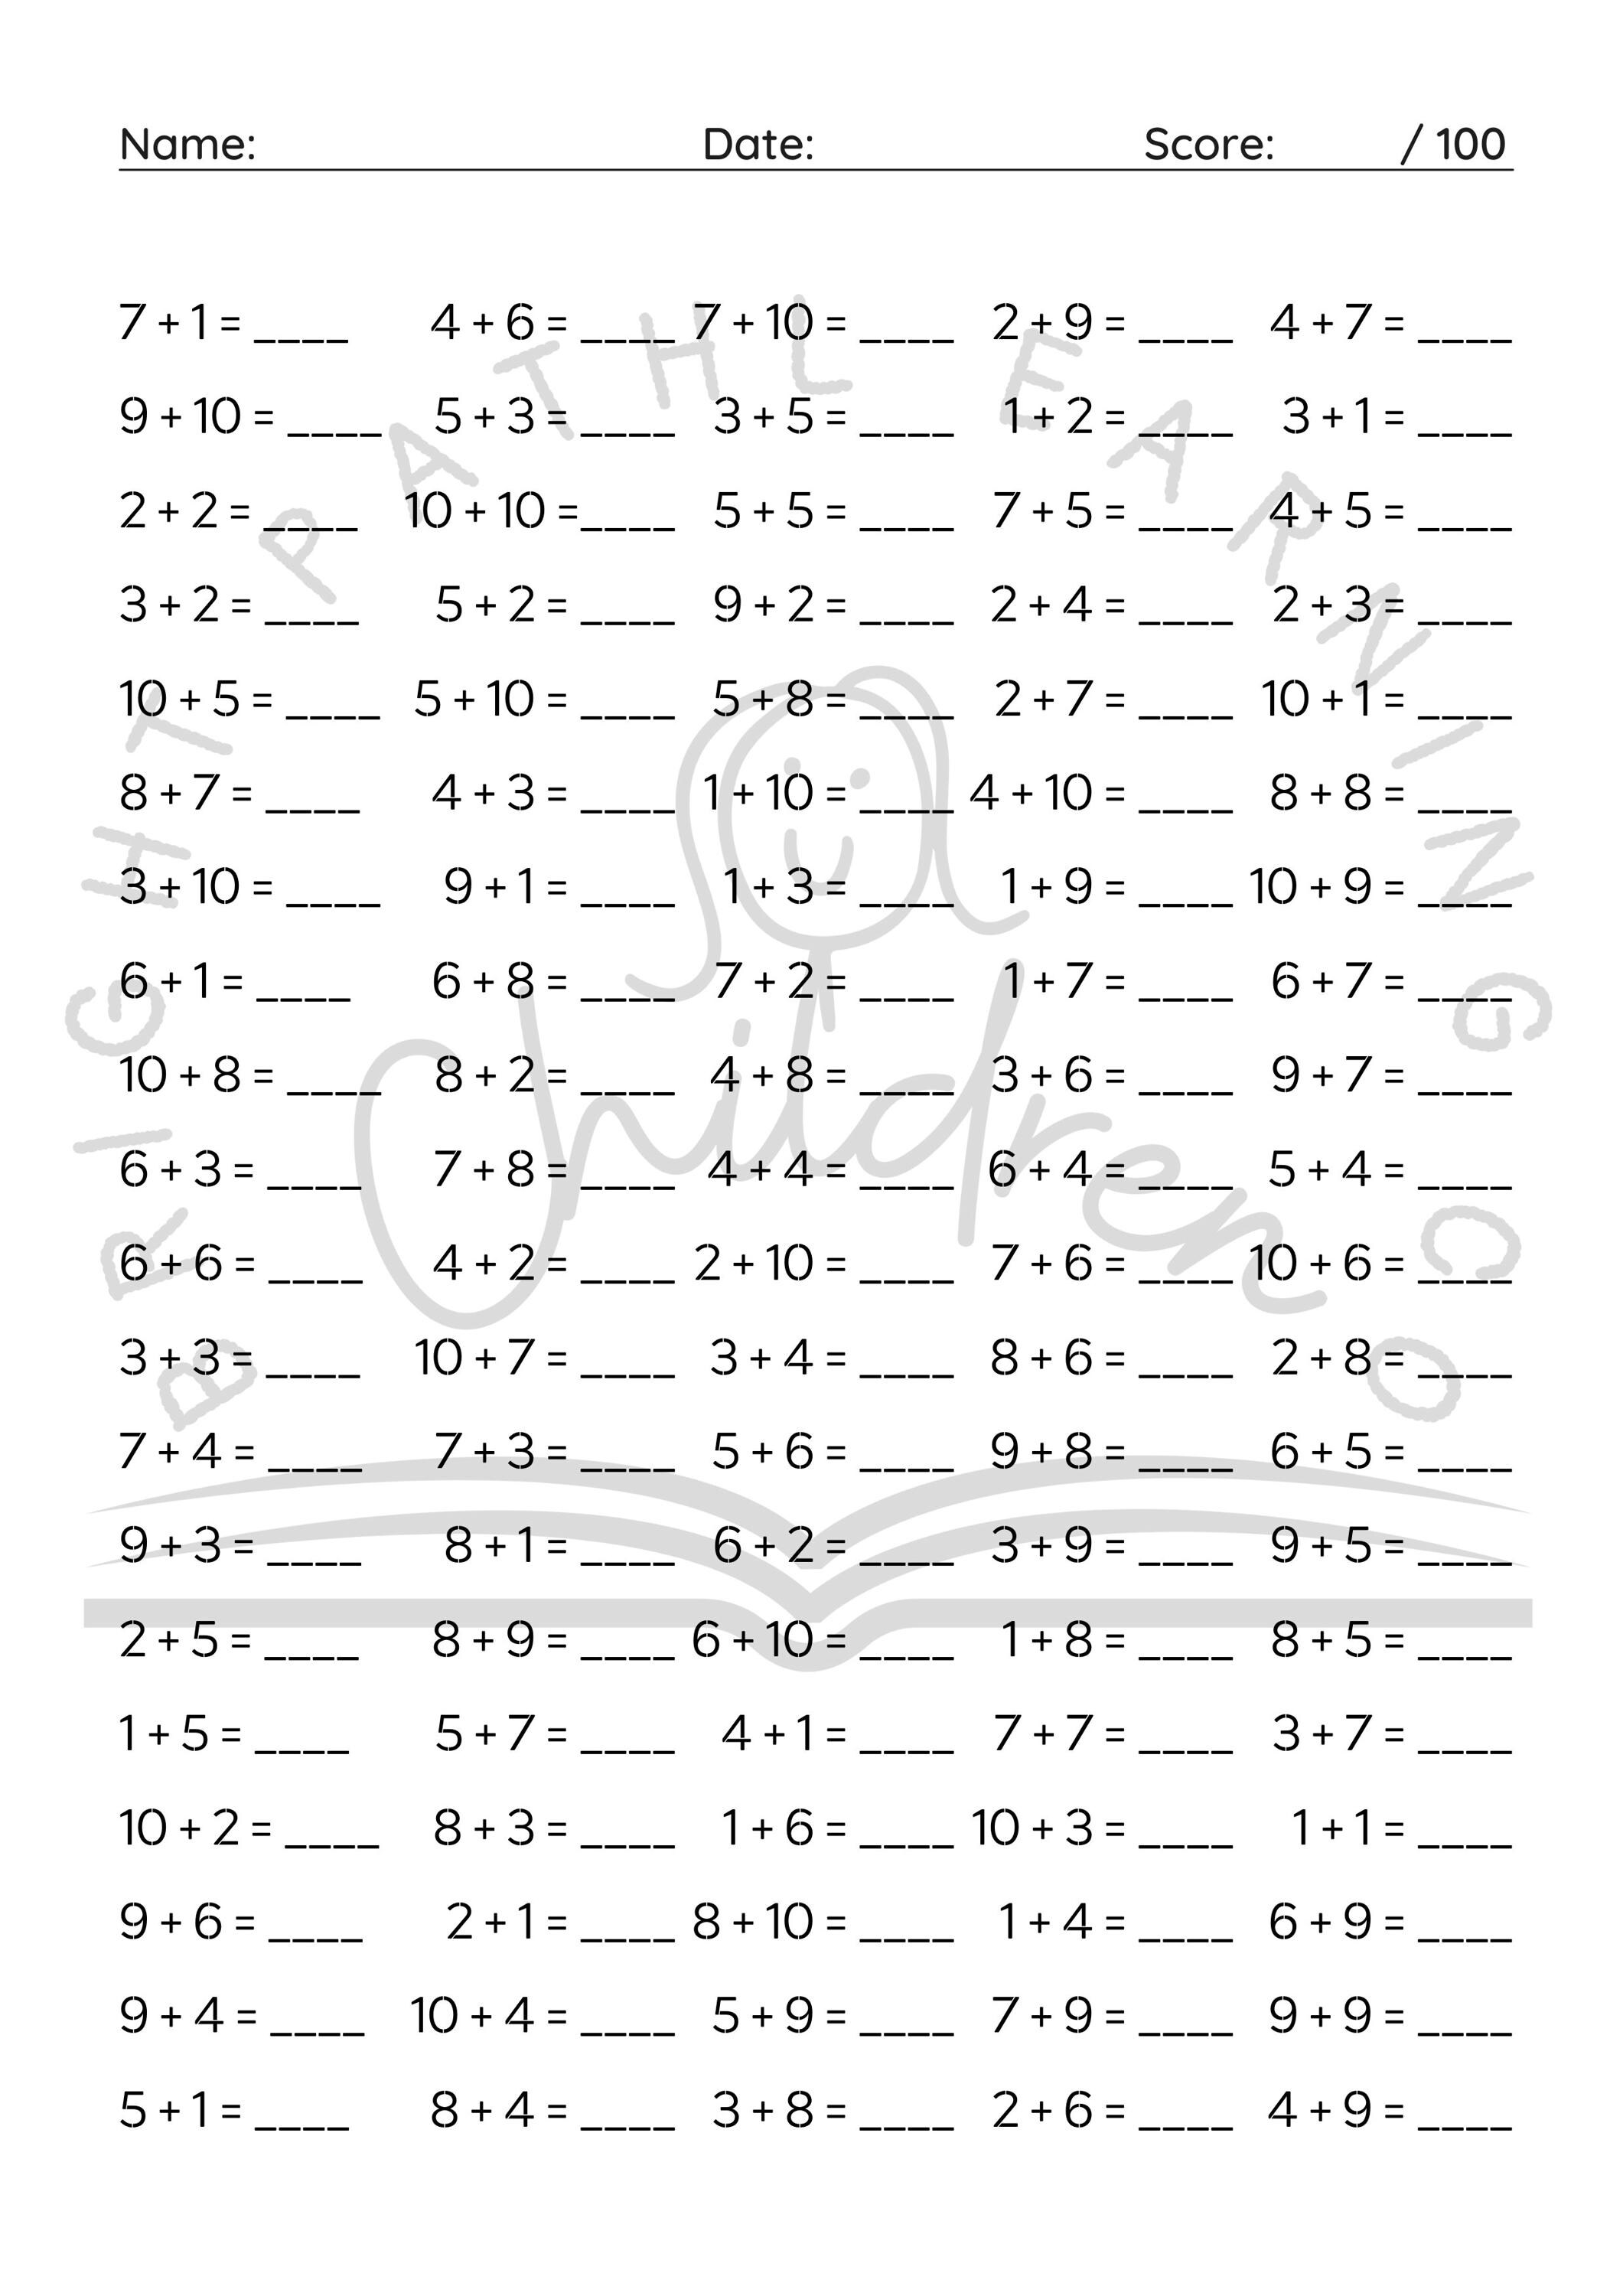 Name: Date: Score: / 100
7 + 1 = ____ 4 + 6 = ____ 7 + 10 = ____ 2 + 9 = ____ 4 + 7 = ____
9 + 10 = ____ 5 + 3 = ____ 3 + 5 = ____ 1 + 2 = ____ 3 + 1 = ____
2 + 2 = ____ 10 + 10 =____ 5 + 5 = ____ 7 + 5 = ____ 4 + 5 = ____
3 + 2 = ____ 5 + 2 = ____ 9 + 2 = ____ 2 + 4 = ____ 2 + 3 = ____
10 + 5 = ____ 5 + 10 = ____ 5 + 8 = ____ 2 + 7 = ____ 10 + 1 = ____
8 + 7 = ____ 4 + 3 = ____ 1 + 10 = ____ 4 + 10 = ____ 8 + 8 = ____
3 + 10 = ____ 9 + 1 = ____ 1 + 3 = ____ 1 + 9 = ____ 10 + 9 = ____
6 + 1 = ____ 6 + 8 = ____ 7 + 2 = ____ 1 + 7 = ____ 6 + 7 = ____
10 + 8 = ____ 8 + 2 = ____ 4 + 8 = ____ 3 + 6 = ____ 9 + 7 = ____
6 + 3 = ____ 7 + 8 = ____ 4 + 4 = ____ 6 + 4 = ____ 5 + 4 = ____
6 + 6 = ____ 4 + 2 = ____ 2 + 10 = ____ 7 + 6 = ____ 10 + 6 = ____
3 + 3 = ____ 10 + 7 = ____ 3 + 4 = ____ 8 + 6 = ____ 2 + 8 = ____
7 + 4 = ____ 7 + 3 = ____ 5 + 6 = ____ 9 + 8 = ____ 6 + 5 = ____
9 + 3 = ____ 8 + 1 = ____ 6 + 2 = ____ 3 + 9 = ____ 9 + 5 = ____
2 + 5 = ____ 8 + 9 = ____ 6 + 10 = ____ 1 + 8 = ____ 8 + 5 = ____
1 + 5 = ____ 5 + 7 = ____ 4 + 1 = ____ 7 + 7 = ____ 3 + 7 = ____
10 + 2 = ____ 8 + 3 = ____ 1 + 6 = ____ 10 + 3 = ____ 1 + 1 = ____
9 + 6 = ____ 2 + 1 = ____ 8 + 10 = ____ 1 + 4 = ____ 6 + 9 = ____
9 + 4 = ____ 10 + 4 = ____ 5 + 9 = ____ 7 + 9 = ____ 9 + 9 = ____
5 + 1 = ____ 8 + 4 = ____ 3 + 8 = ____ 2 + 6 = ____ 4 + 9 = ____
BRIGHT PATH LEARNING CO
Children